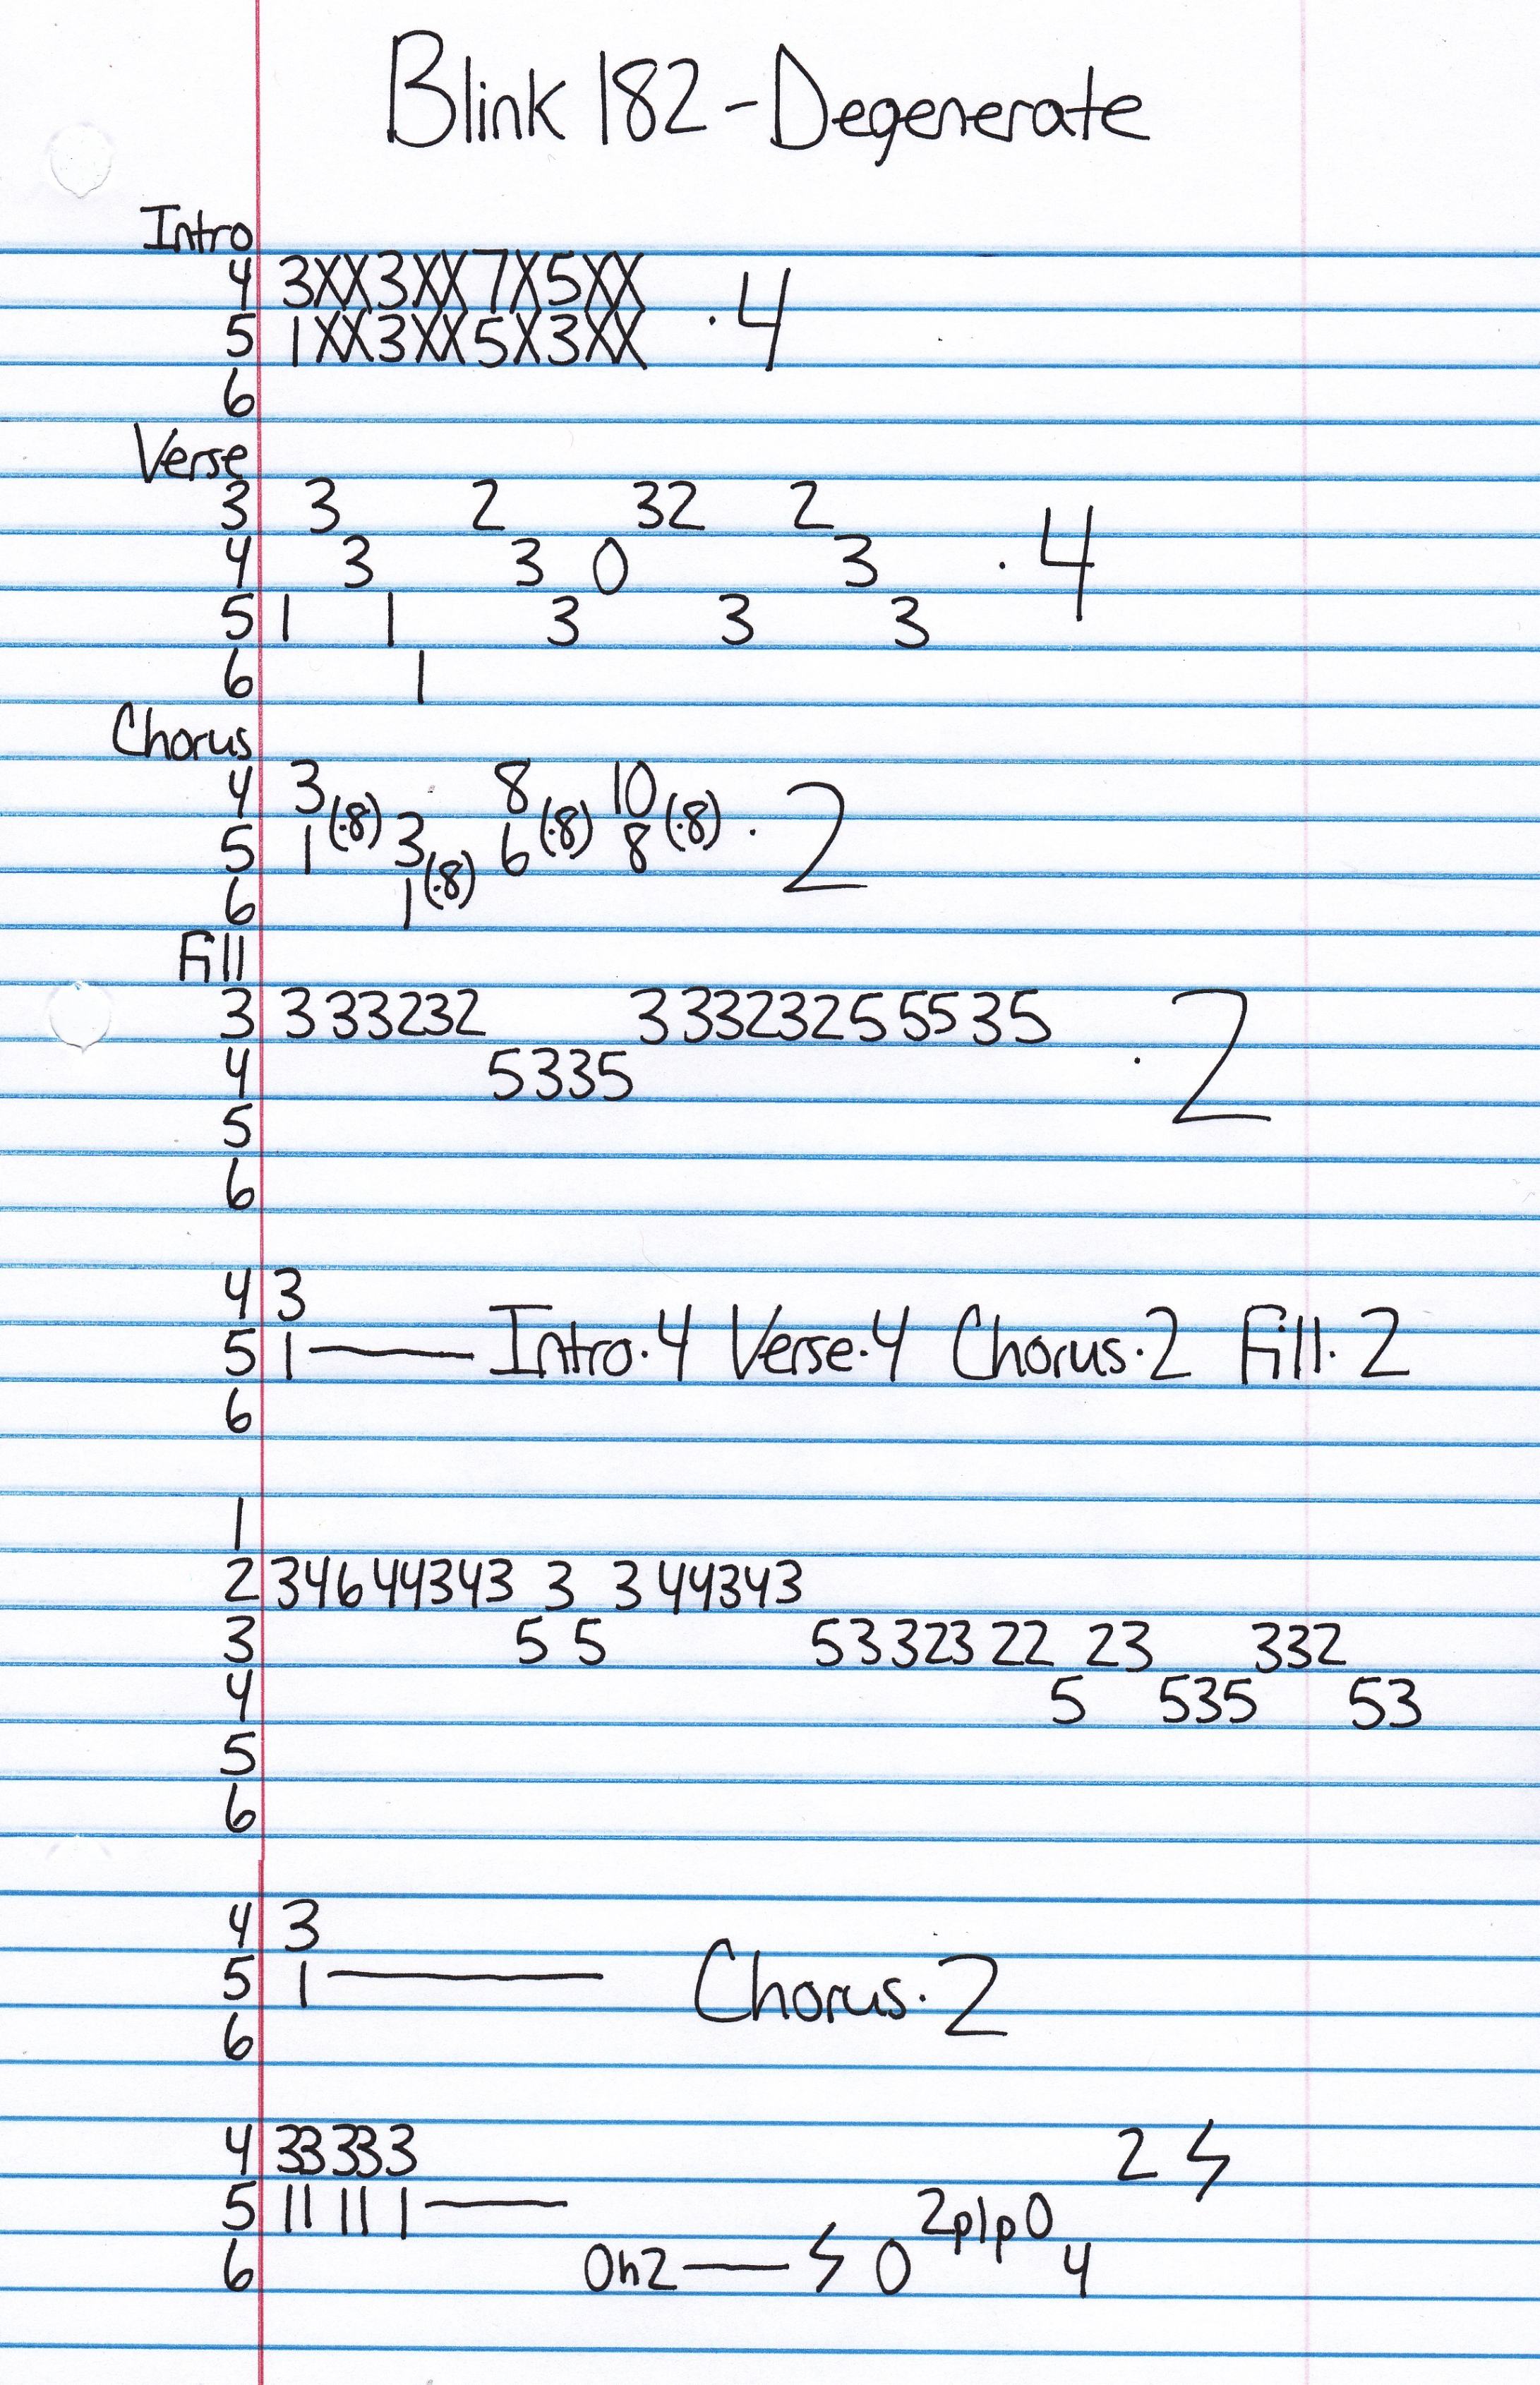 Blink 182 - Degenerate
Intro
4 3XX3XX7X5XX ·4
5 1XX3XX5X3XX
6
Verse
3 3 2 32 2 ·4
4 3 3 0 3
5 1 1 3 3 3
6 1
Chorus
4 3 8 10
(·8) (·8) (·8) ·2
5 1 3 6 8
(·8)
6 1
Fill
3 3 33232 3 33232 5 55 35 ·2
4 5335
5
6
4 3
5 1—— Intro·4 Verse·4 Chorus·2 Fill·2
6
1
2 34644343 3 3 44343
3 5 5 53323 22 23 332
4 5 535 53
5
6
4 3
5 1—— Chorus·2
6
4 33 33 3 2 ϟ
5 11 11 1—— 2p1p0
6 0h2—— ϟ 0 4